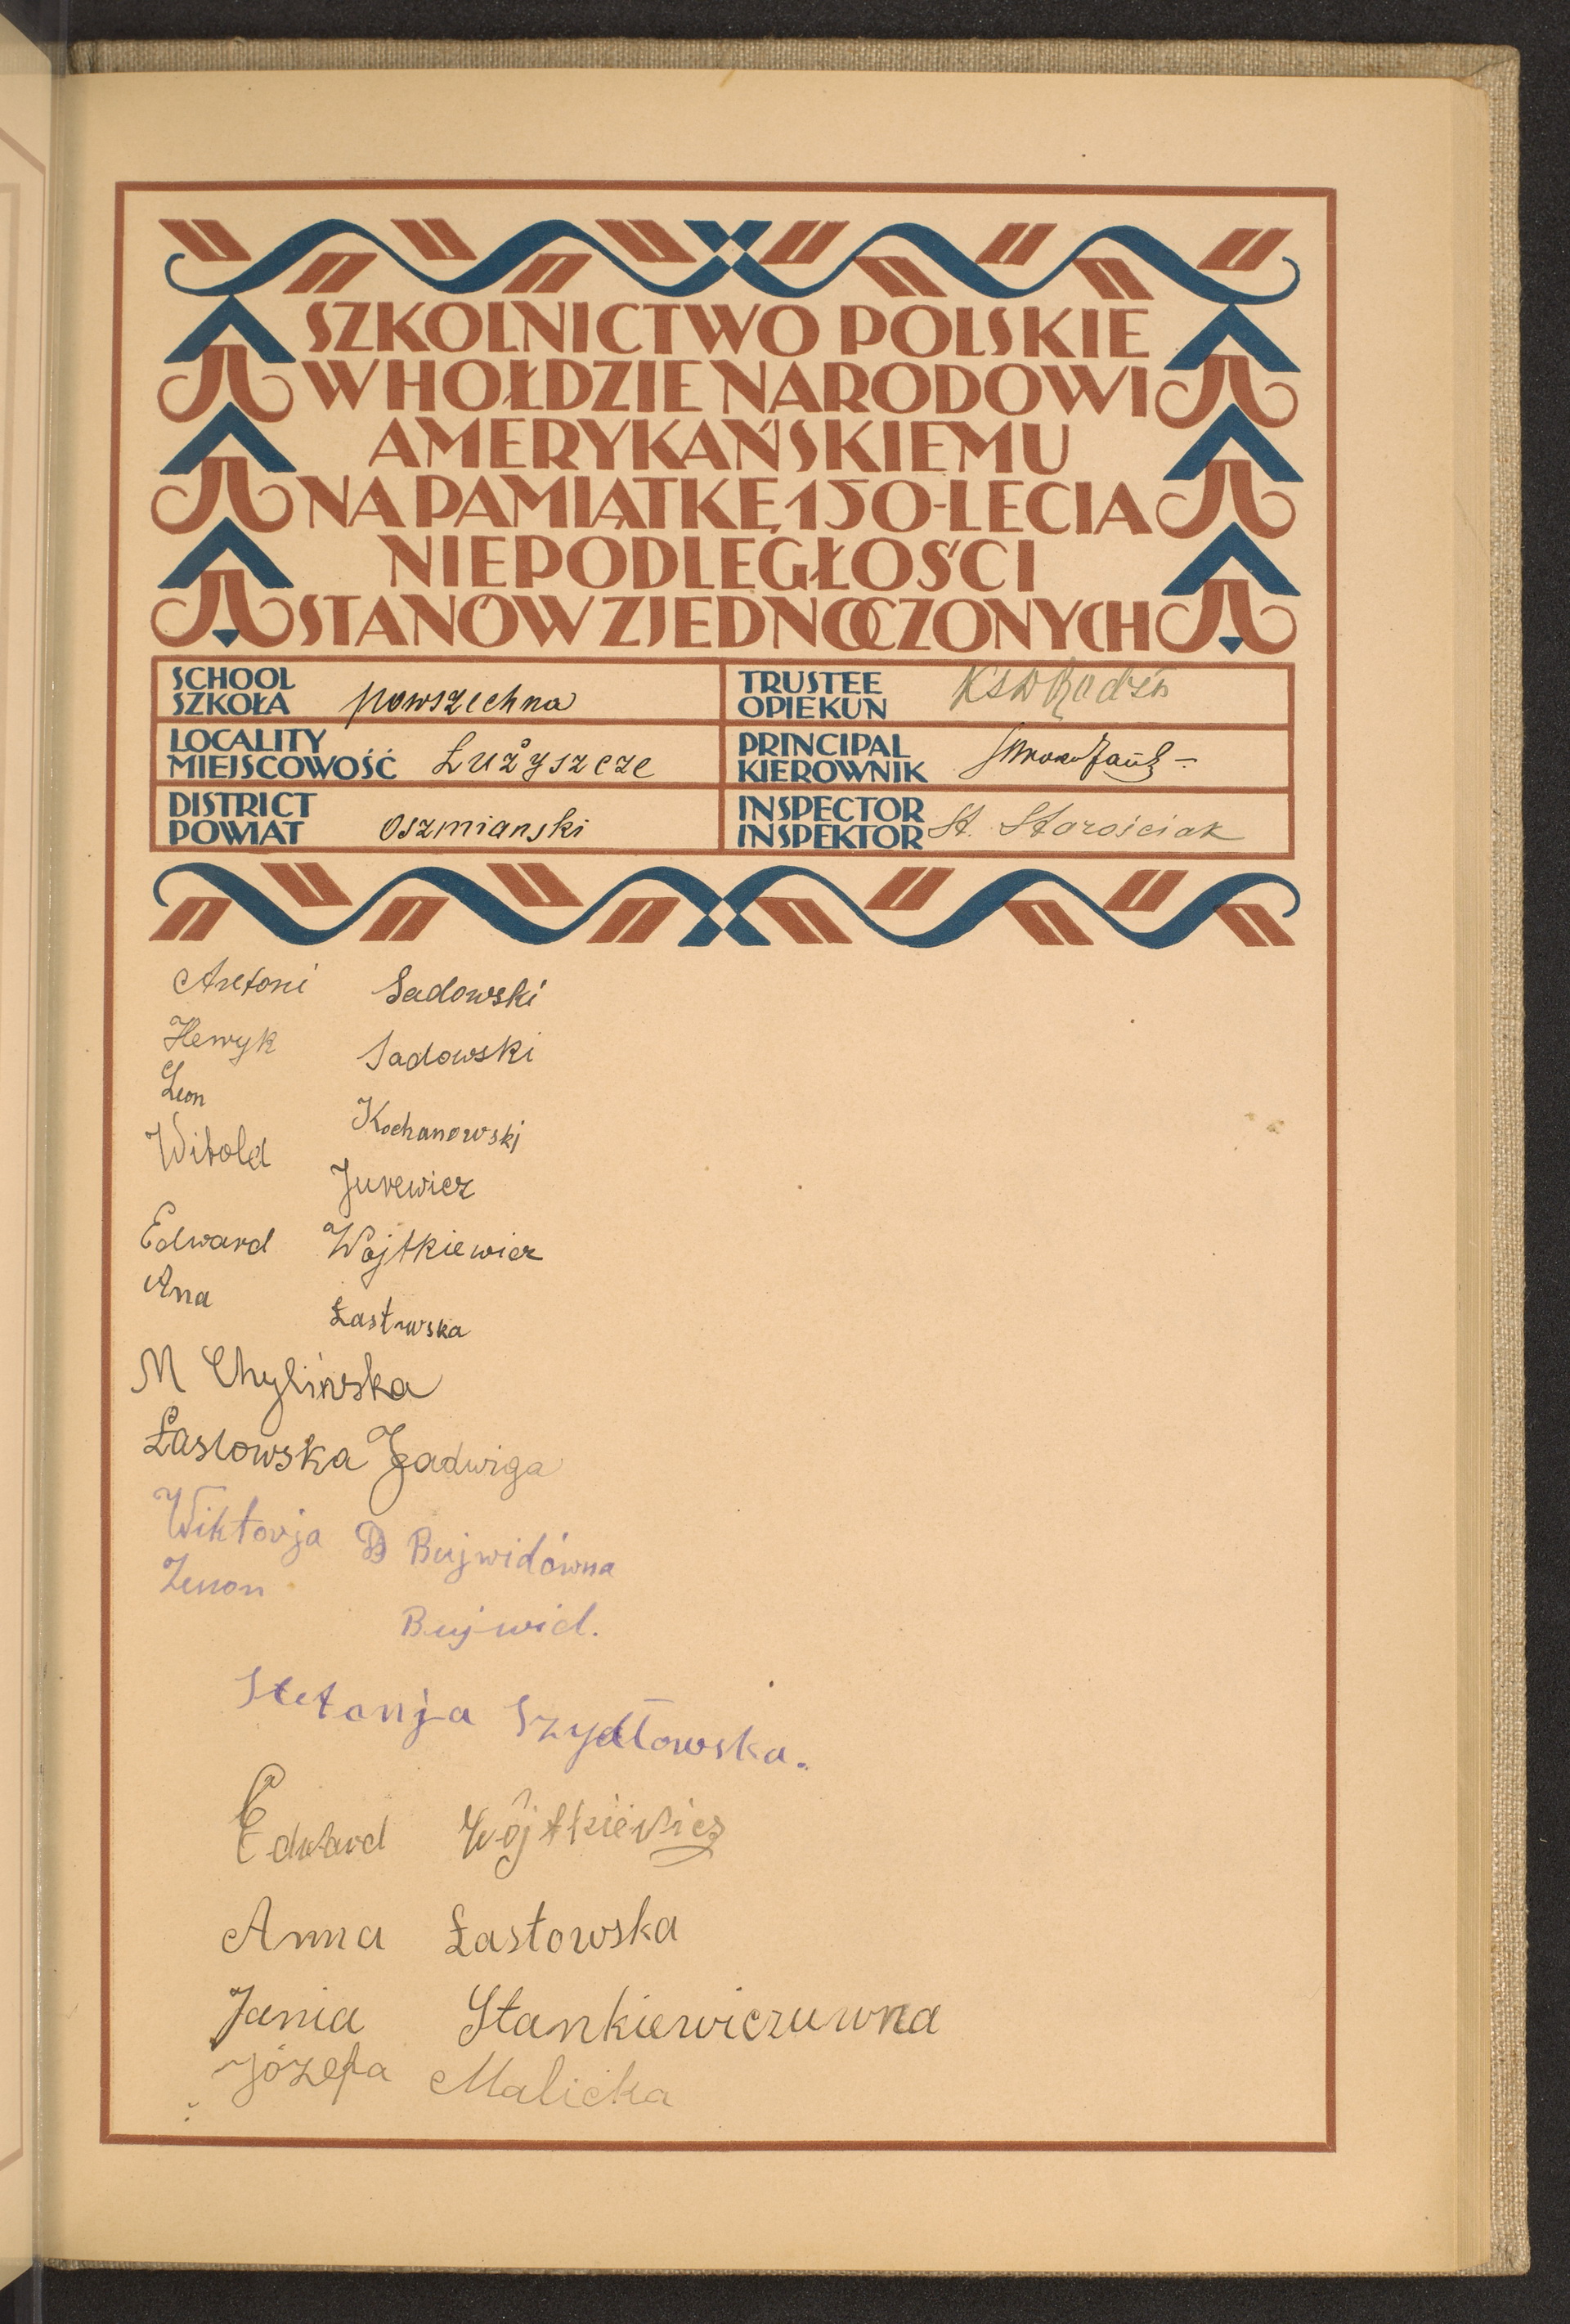 SZKOLNICTWO POLSKIE
W HOŁDZIE NARODOWI
AMERYKAŃSKIEMU
NA PAMIĄTKĘ 150-LECIA
NIEPODLEGŁOŚCI
STANÓW ZJEDNOCZONYCH
SCHOOL
SZKOŁA powszechna
TRUSTEE
OPIEKUN
LOCALITY
MIEJSCOWOŚĆ Łużyszcze
PRINCIPAL
KIEROWNIK
DISTRICT
POWIAT oszmianski
INSPECTOR
INSPEKTOR St. Starościak
Antoni Sadowski
Henryk Sadowski
Leon Kochanowski
Witold Jurewicz
Edward Wojtkiewicz
Ana Łastwska
M Chylińska
Łastowska Jadwiga
Wiktorja B Bujwidówna
Zenon Bujwid.
Stefanja Szydłowska.
Edward Wójtkiewicz
Anna Łastowska
Jania Stankiewiczuwna
Józefa Malicka